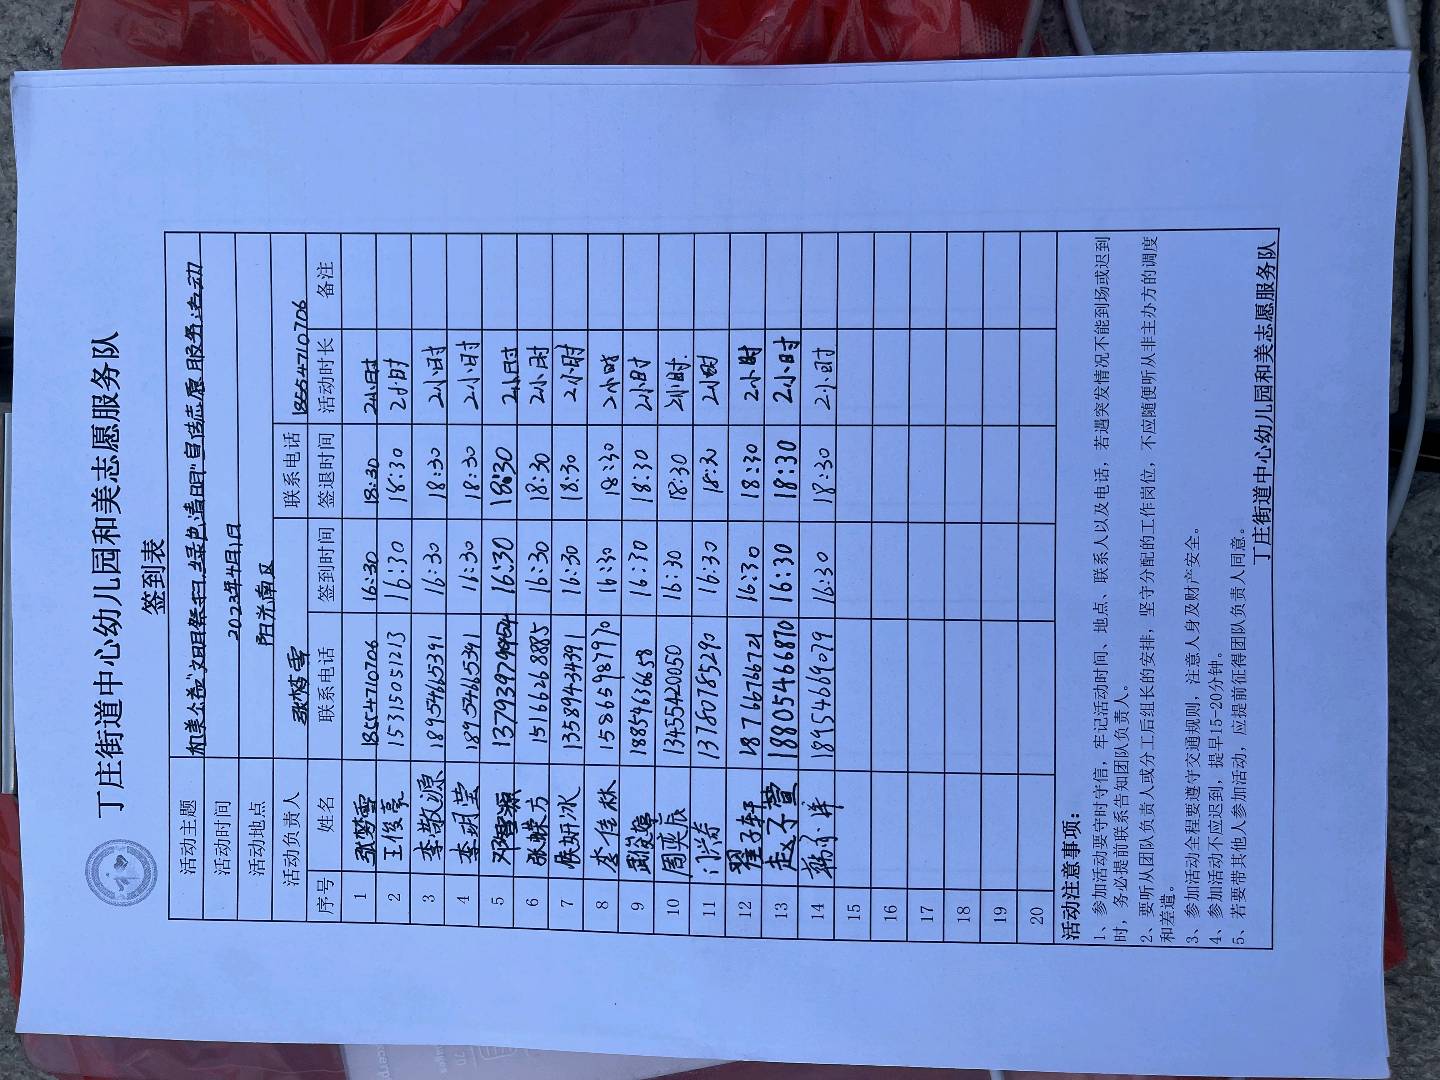 丁庄街道中心幼儿园和美志愿服务队
签到表
活动主题 和美公益"文明祭扫,绿色清明"宣传志愿服务活动
活动时间 2023年4月1日
活动地点 阳光南区
活动负责人 张梦雪 联系电话 18554710706
序号 姓名 联系电话 签到时间 签退时间 活动时长 备注
1 张梦雪 18554710706 16:30 18:30 2小时
2 王俊亮 15315051213 16:30 18:30 2小时
3 李敬源 18954665391 16:30 18:30 2小时
4 李玥莹 18954665391 16:30 18:30 2小时
5 邓智源 16:30 18:30 2小时
6 张蝾方 15166168885 16:30 18:30 2小时
7 妍冰 13589434391 16:30 18:30 2小时
8 李佳林 15865987970 16:30 18:30 2小时
9 18854636658 16:30 18:30 2小时
10 周奕辰 13455420050 16:30 18:30 2小时
11 13780785290 16:30 18:30 2小时
12 翟子轩 18766766721 16:30 18:30 2小时
13 赵子萱 18805466870 16:30 18:30 2小时
14 18954669079 16:30 18:30 2小时
15
16
17
18
19
20
活动注意事项:
1、参加活动要守时守信,牢记活动时间、地点、联系人以及电话,若遇突发情况不能到场或迟到
时,务必提前联系告知团队负责人。
2、要听从团队负责人或分工后组长的安排,坚守分配的工作岗位,不应随便听从非主办方的调度
和差遣。
3、参加活动全程要遵守交通规则,注意人身及财产安全。
4、参加活动不应迟到,提早15-20分钟。
5、若要带其他人参加活动,应提前征得团队负责人同意。
丁庄街道中心幼儿园和美志愿服务队